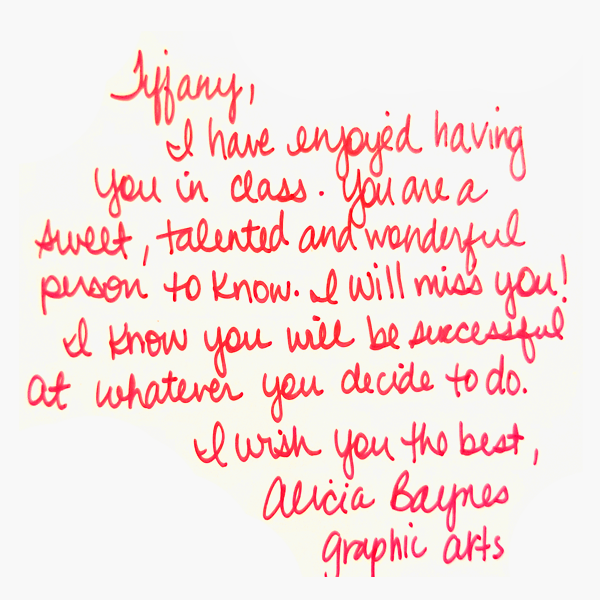 Tiffany,
I have enjoyed having
you in class. You are a
sweet, talented and wonderful
person to know. I will miss you!
I know you will be successful
at whatever you decide to do.
I wish you the best,
Alicia Baynes
graphic arts